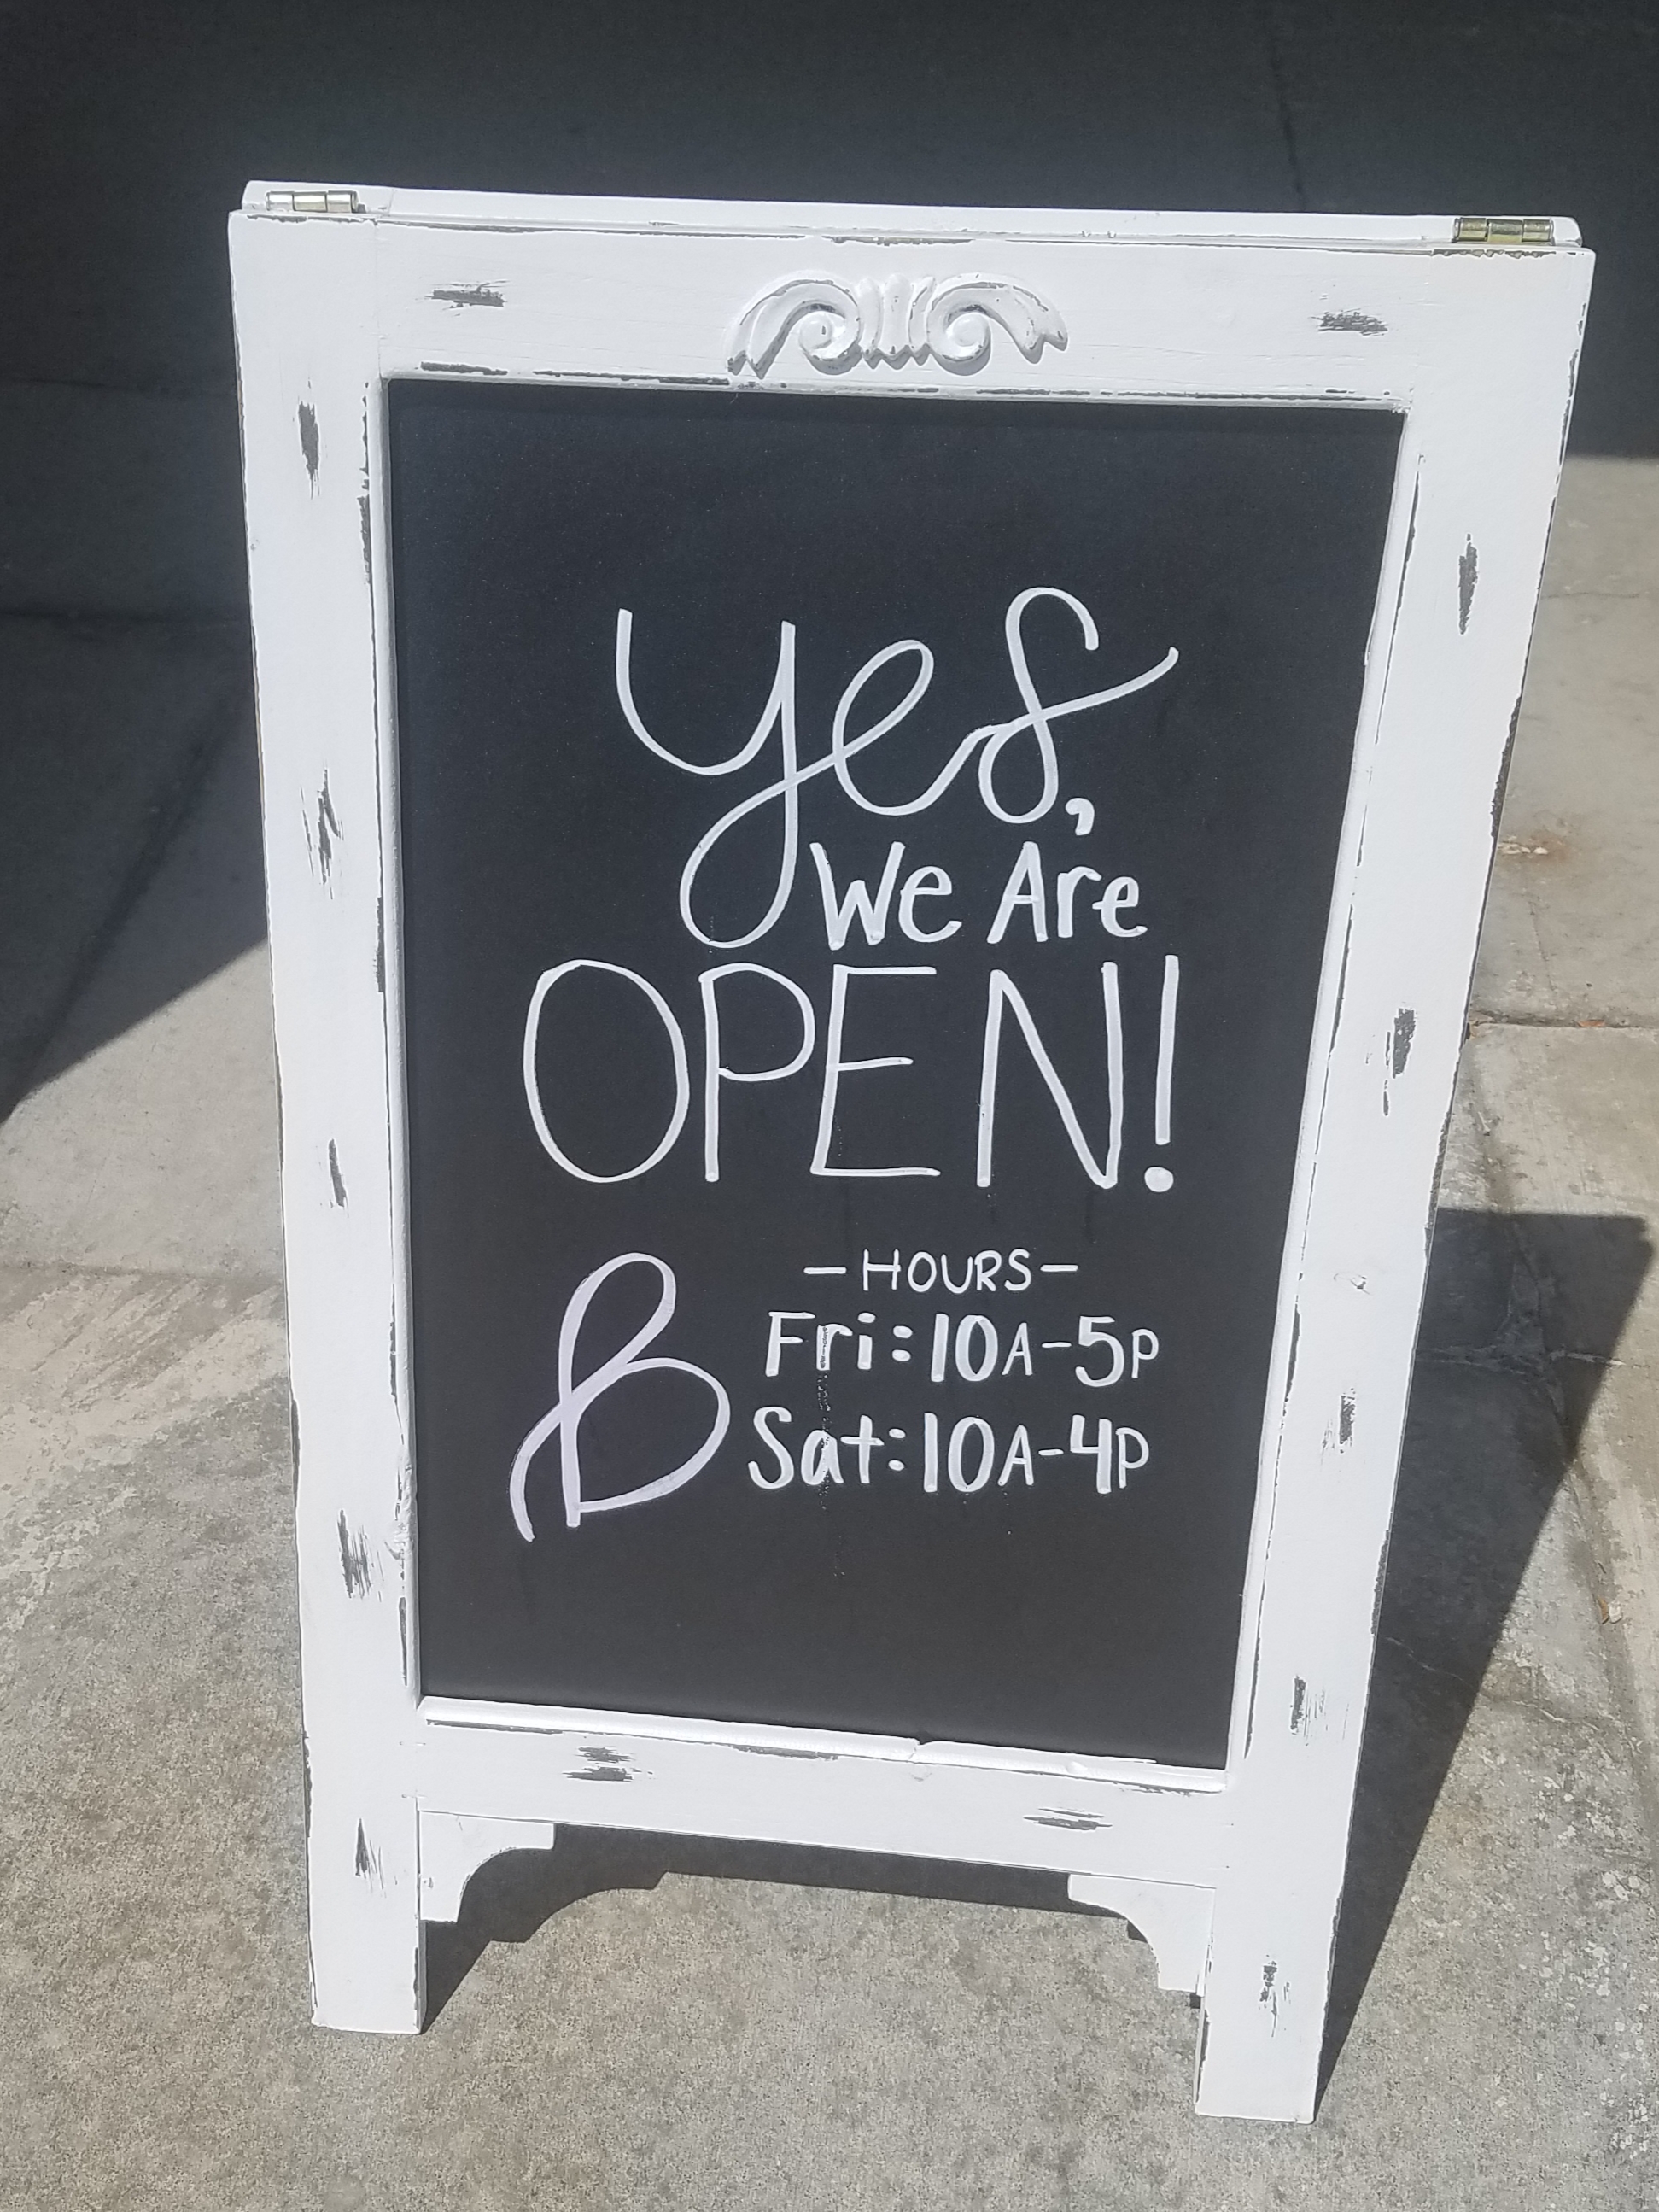 yes,
We Are
OPEN!
-HOURS-
B Fri: 10A-5P
Sat: 10A-4P